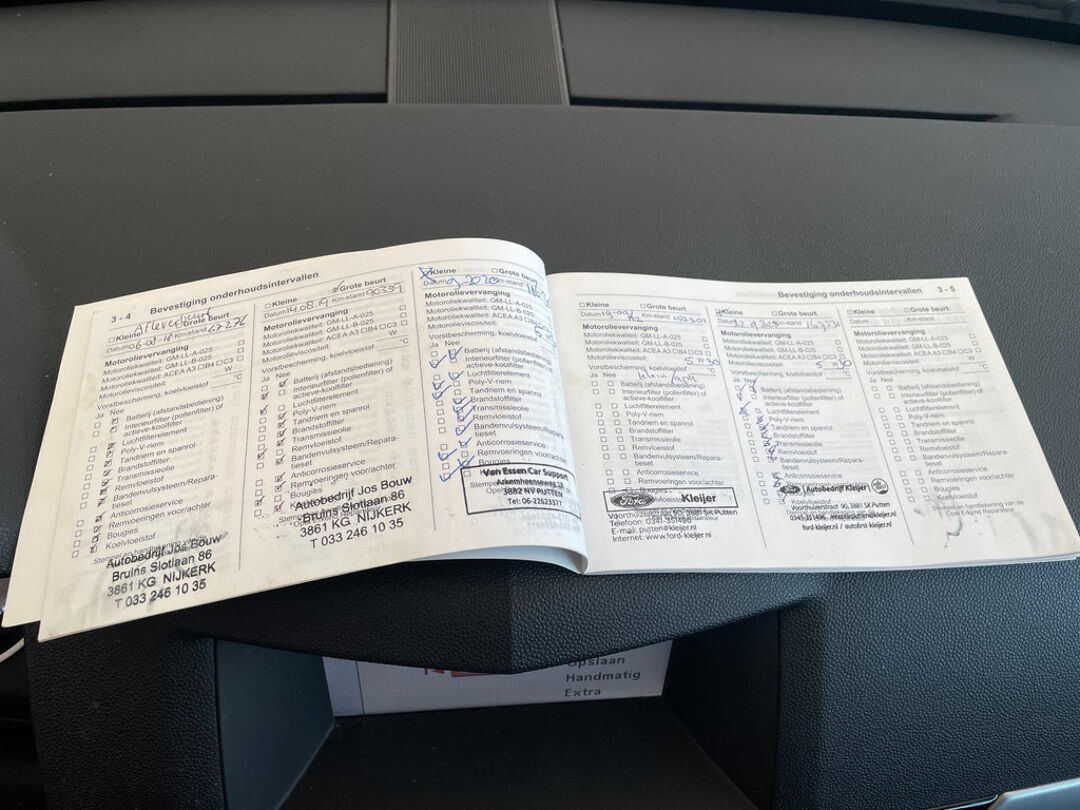 3 - 4 Bevestiging onderhoudsintervallen
Afleverbeurt
□ Kleine □ Grote beurt
Datum Km-stand 67276
Motorolievervanging
Motoroliekwaliteit: GM-LL-A-025 □
Motoroliekwaliteit: GM-LL-B-025 □
Motoroliekwaliteit: ACEA A3 □B4 □C3 □
Motorolieviscositeit: W
Vorstbescherming, koelvloeistof °C
Ja Nee
Batterij (afstandsbediening)
Interieurfilter (pollenfilter) of
actieve-koolfilter
Luchtfilterelement
Poly-V-riem
Tandriem en spanrol
Brandstoffilter
Transmissieolie
Remvloeistof
Bandenvulsysteem/Repara-
tieset
Anticorrosieservice
Remvoeringen voor/achter
Bougies
Koelvloeistof
Autobedrijf Jos Bouw
Bruins Slotlaan 86
3861 KG NIJKERK
T 033 246 10 35
□ Kleine Grote beurt
Datum 14.08.19 Km-stand 90339
Motorolievervanging
Motoroliekwaliteit: GM-LL-A-025 □
Motoroliekwaliteit: GM-LL-B-025 □
Motoroliekwaliteit: ACEA A3 □B4 □C3 □
Motorolieviscositeit: W
Vorstbescherming, koelvloeistof °C
Ja Nee
Batterij (afstandsbediening)
Interieurfilter (pollenfilter) of
actieve-koolfilter
Luchtfilterelement
Poly-V-riem
Tandriem en spanrol
Brandstoffilter
Transmissieolie
Remvloeistof
Bandenvulsysteem/Repara-
tieset
Anticorrosieservice
Remvoeringen voor/achter
Bougies
Autobedrijf Jos Bouw
Bruins Slotlaan 86
3861 KG NIJKERK
T 033 246 10 35
Kleine □ Grote beurt
Datum 9-2020 Km-stand
Motorolievervanging
Motoroliekwaliteit: GM-LL-A-025
Motoroliekwaliteit: GM-LL-B-025
Motoroliekwaliteit: ACEA A3
Motorolieviscositeit:
Vorstbescherming, koelvloeistof
Ja Nee
Batterij (afstandsbediening)
Interieurfilter (pollenfilter) of
actieve-koolfilter
Luchtfilterelement
Poly-V-riem
Tandriem en spanrol
Brandstoffilter
Transmissieolie
Remvloeistof
Bandenvulsysteem/Repara-
tieset
Anticorrosieservice
Remvoeringen voor/achter
Bougies
Van Essen Car Support
Arkemheenseweg
3882 NV PUTTEN
Tel: 06-22623377
Bevestiging onderhoudsintervallen 3 - 5
□ Kleine □ Grote beurt
Datum Km-stand
Motorolievervanging
Motoroliekwaliteit: GM-LL-A-025 □
Motoroliekwaliteit: GM-LL-B-025 □
Motoroliekwaliteit: ACEA A3 □B4 □C3 □
Motorolieviscositeit: 5 W 30
Vorstbescherming, koelvloeistof °C
Ja Nee
Batterij (afstandsbediening)
Interieurfilter (pollenfilter) of
actieve-koolfilter
Luchtfilterelement
Poly-V-riem
Tandriem en spanrol
Brandstoffilter
Transmissieolie
Remvloeistof
Bandenvulsysteem/Repara-
tieset
Anticorrosieservice
Remvoeringen voor/achter
Bougies
Ford Kleijer
Voorthuizerstraat 90, 3981 SK Putten
Telefoon: 0341-351496
E-mail: putten@kleijer.nl
Internet: www.ford-kleijer.nl
Kleine □ Grote beurt
Datum Km-stand
Motorolievervanging
Motoroliekwaliteit: GM-LL-A-025 □
Motoroliekwaliteit: GM-LL-B-025 □
Motoroliekwaliteit: ACEA A3 □B4 □C3 □
Motorolieviscositeit: 5 W 30
Vorstbescherming, koelvloeistof °C
Ja Nee
Batterij (afstandsbediening)
Interieurfilter (pollenfilter) of
actieve-koolfilter
Luchtfilterelement
Poly-V-riem
Tandriem en spanrol
Brandstoffilter
Transmissieolie
Remvloeistof
Bandenvulsysteem/Repara-
tieset
Anticorrosieservice
Remvoeringen voor/achter
Bougies
Koelvloeistof
Autobedrijf Kleijer
Voorthuizerstraat 90, 3881 SK Putten
ford-kleijer.nl / autofirst-kleijer.nl
□ Kleine □ Grote beurt
Datum Km-stand
Motorolievervanging
Motoroliekwaliteit: GM-LL-A-025 □
Motoroliekwaliteit: GM-LL-B-025 □
Motoroliekwaliteit: ACEA A3 □B4 □C3 □
Motorolieviscositeit: W
Vorstbescherming, koelvloeistof °C
Ja Nee
Batterij (afstandsbediening)
Interieurfilter (pollenfilter) of
actieve-koolfilter
Luchtfilterelement
Poly-V-riem
Tandriem en spanrol
Brandstoffilter
Transmissieolie
Remvloeistof
Bandenvulsysteem/Repara-
tieset
Anticorrosieservice
Remvoeringen voor/achter
Bougies
Koelvloeistof
Stempel en handtekening van de
Opel Erkend Reparateur
Opslaan
Handmatig
Extra